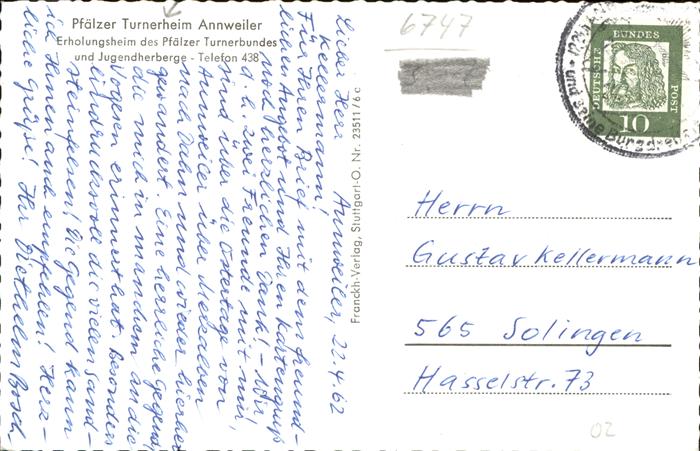 Pfälzer Turnerheim Annweiler
Erholungsheim des Pfälzer Turnerbundes
und Jugendherberge - Telefon 438
Annweiler, 22.4.62
Lieber Herr
Kellermann!
Für Ihren Brief mit dem freund-
lichen Angebot und Ihren Kartengruß
noch herzlichen Dank! - Wir,
d. h. zwei Freunde mit mir,
sind über die Ostertage von
Annweiler über
nach Dahn und wieder hierher
gewandert. Eine herrliche Gegend,
die mich in manchem an die
Vogesen erinnert hat. Besonders
eindrucksvoll die vielen Sand-
steinfelsen! Die Gegend kann
ich Ihnen and empfehlen! Herz-
liche Grüße! Ihr
Franckh-Verlag, Stuttgart-O. Nr. 23511/6 c
6747
DEUTSCHE BUNDESPOST
10
und seine Burgdrei
Herrn
Gustav Kellermann
565 Solingen
Hasselstr. 73
02